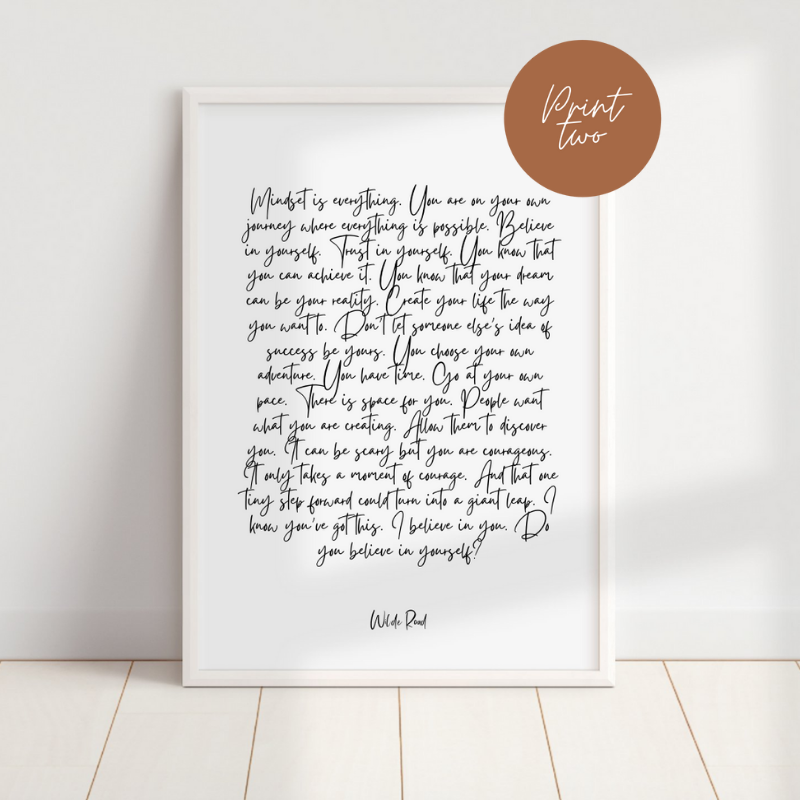 Print
two
Mindset is everything. You are on your own
journey where everything is possible. Believe
in yourself. Trust in yourself. You know that
you can achieve it. You know that your dream
can be your reality. Create your life the way
you want to. Don't let someone else's idea of
success be yours. You choose your own
adventure. You have time. Go at your own
pace. There is space for you. People want
what you are creating. Allow them to discover
you. It can be scary but you are courageous.
It only takes a moment of courage. And that one
tiny step forward could turn into a giant leap. I
know you've got this. I believe in you. Do
you believe in yourself?
Wilde Road